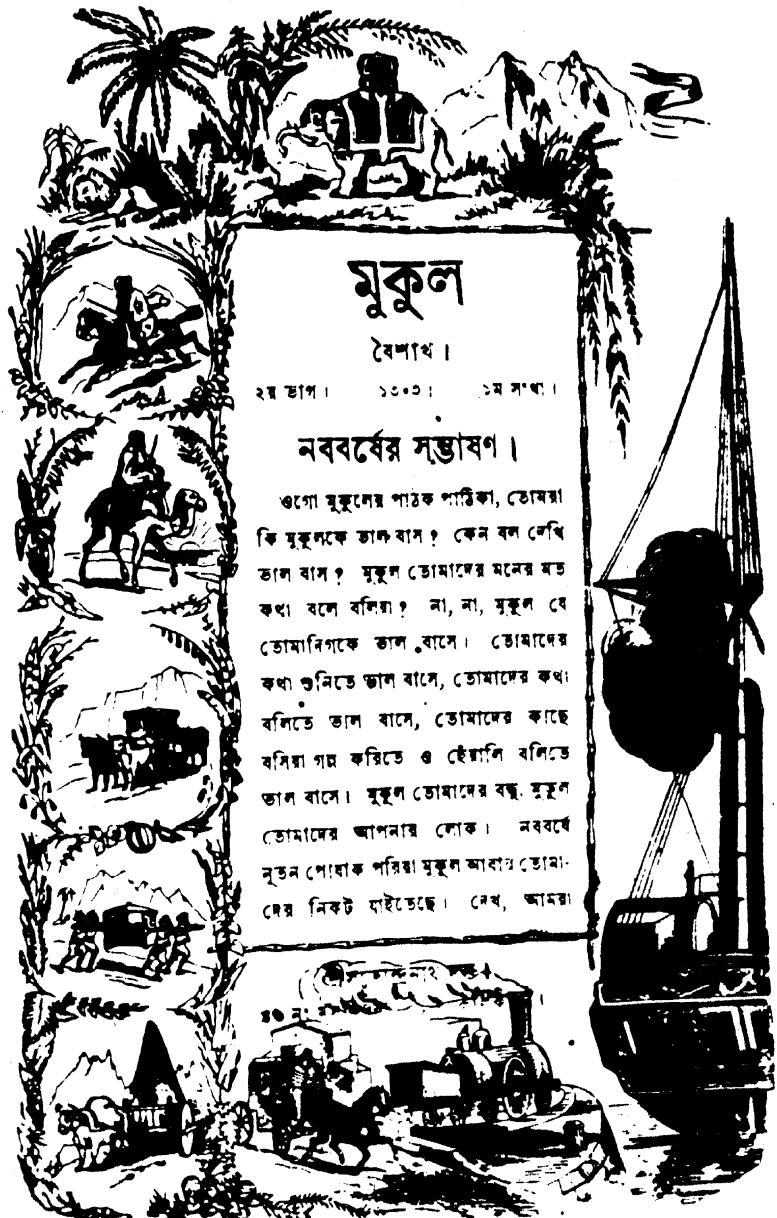 মুকুল
বৈশাখ।
২য় ভাগ। ১৩০৩। ১ম সংখ্যা।
নববর্ষের সম্ভাষণ।
ওগো মুকুলের পাঠক পাঠিকা, তোমরা
কি মুকুলকে ভাল বাস? কেন বল দেখি
ভাল বাস? মুকুল তোমাদের মনের মত
কথা বলে বলিয়া? না, না, মুকুল যে
তোমাদিগকে ভাল বাসে। তোমাদের
কথা শুনিতে ভাল বাসে, তোমাদের কথা
বলিতে ভাল বাসে, তোমাদের কাছে
বসিয়া গল্প করিতে ও হেঁয়ালি বলিতে
ভাল বাসে। মুকুল তোমাদের বন্ধু, মুকুল
তোমাদের আপনার লোক। নববর্ষে
নূতন পোষাক পরিয়া মুকুল আবার তোমা-
দের নিকট যাইতেছে। দেখ, আমরা